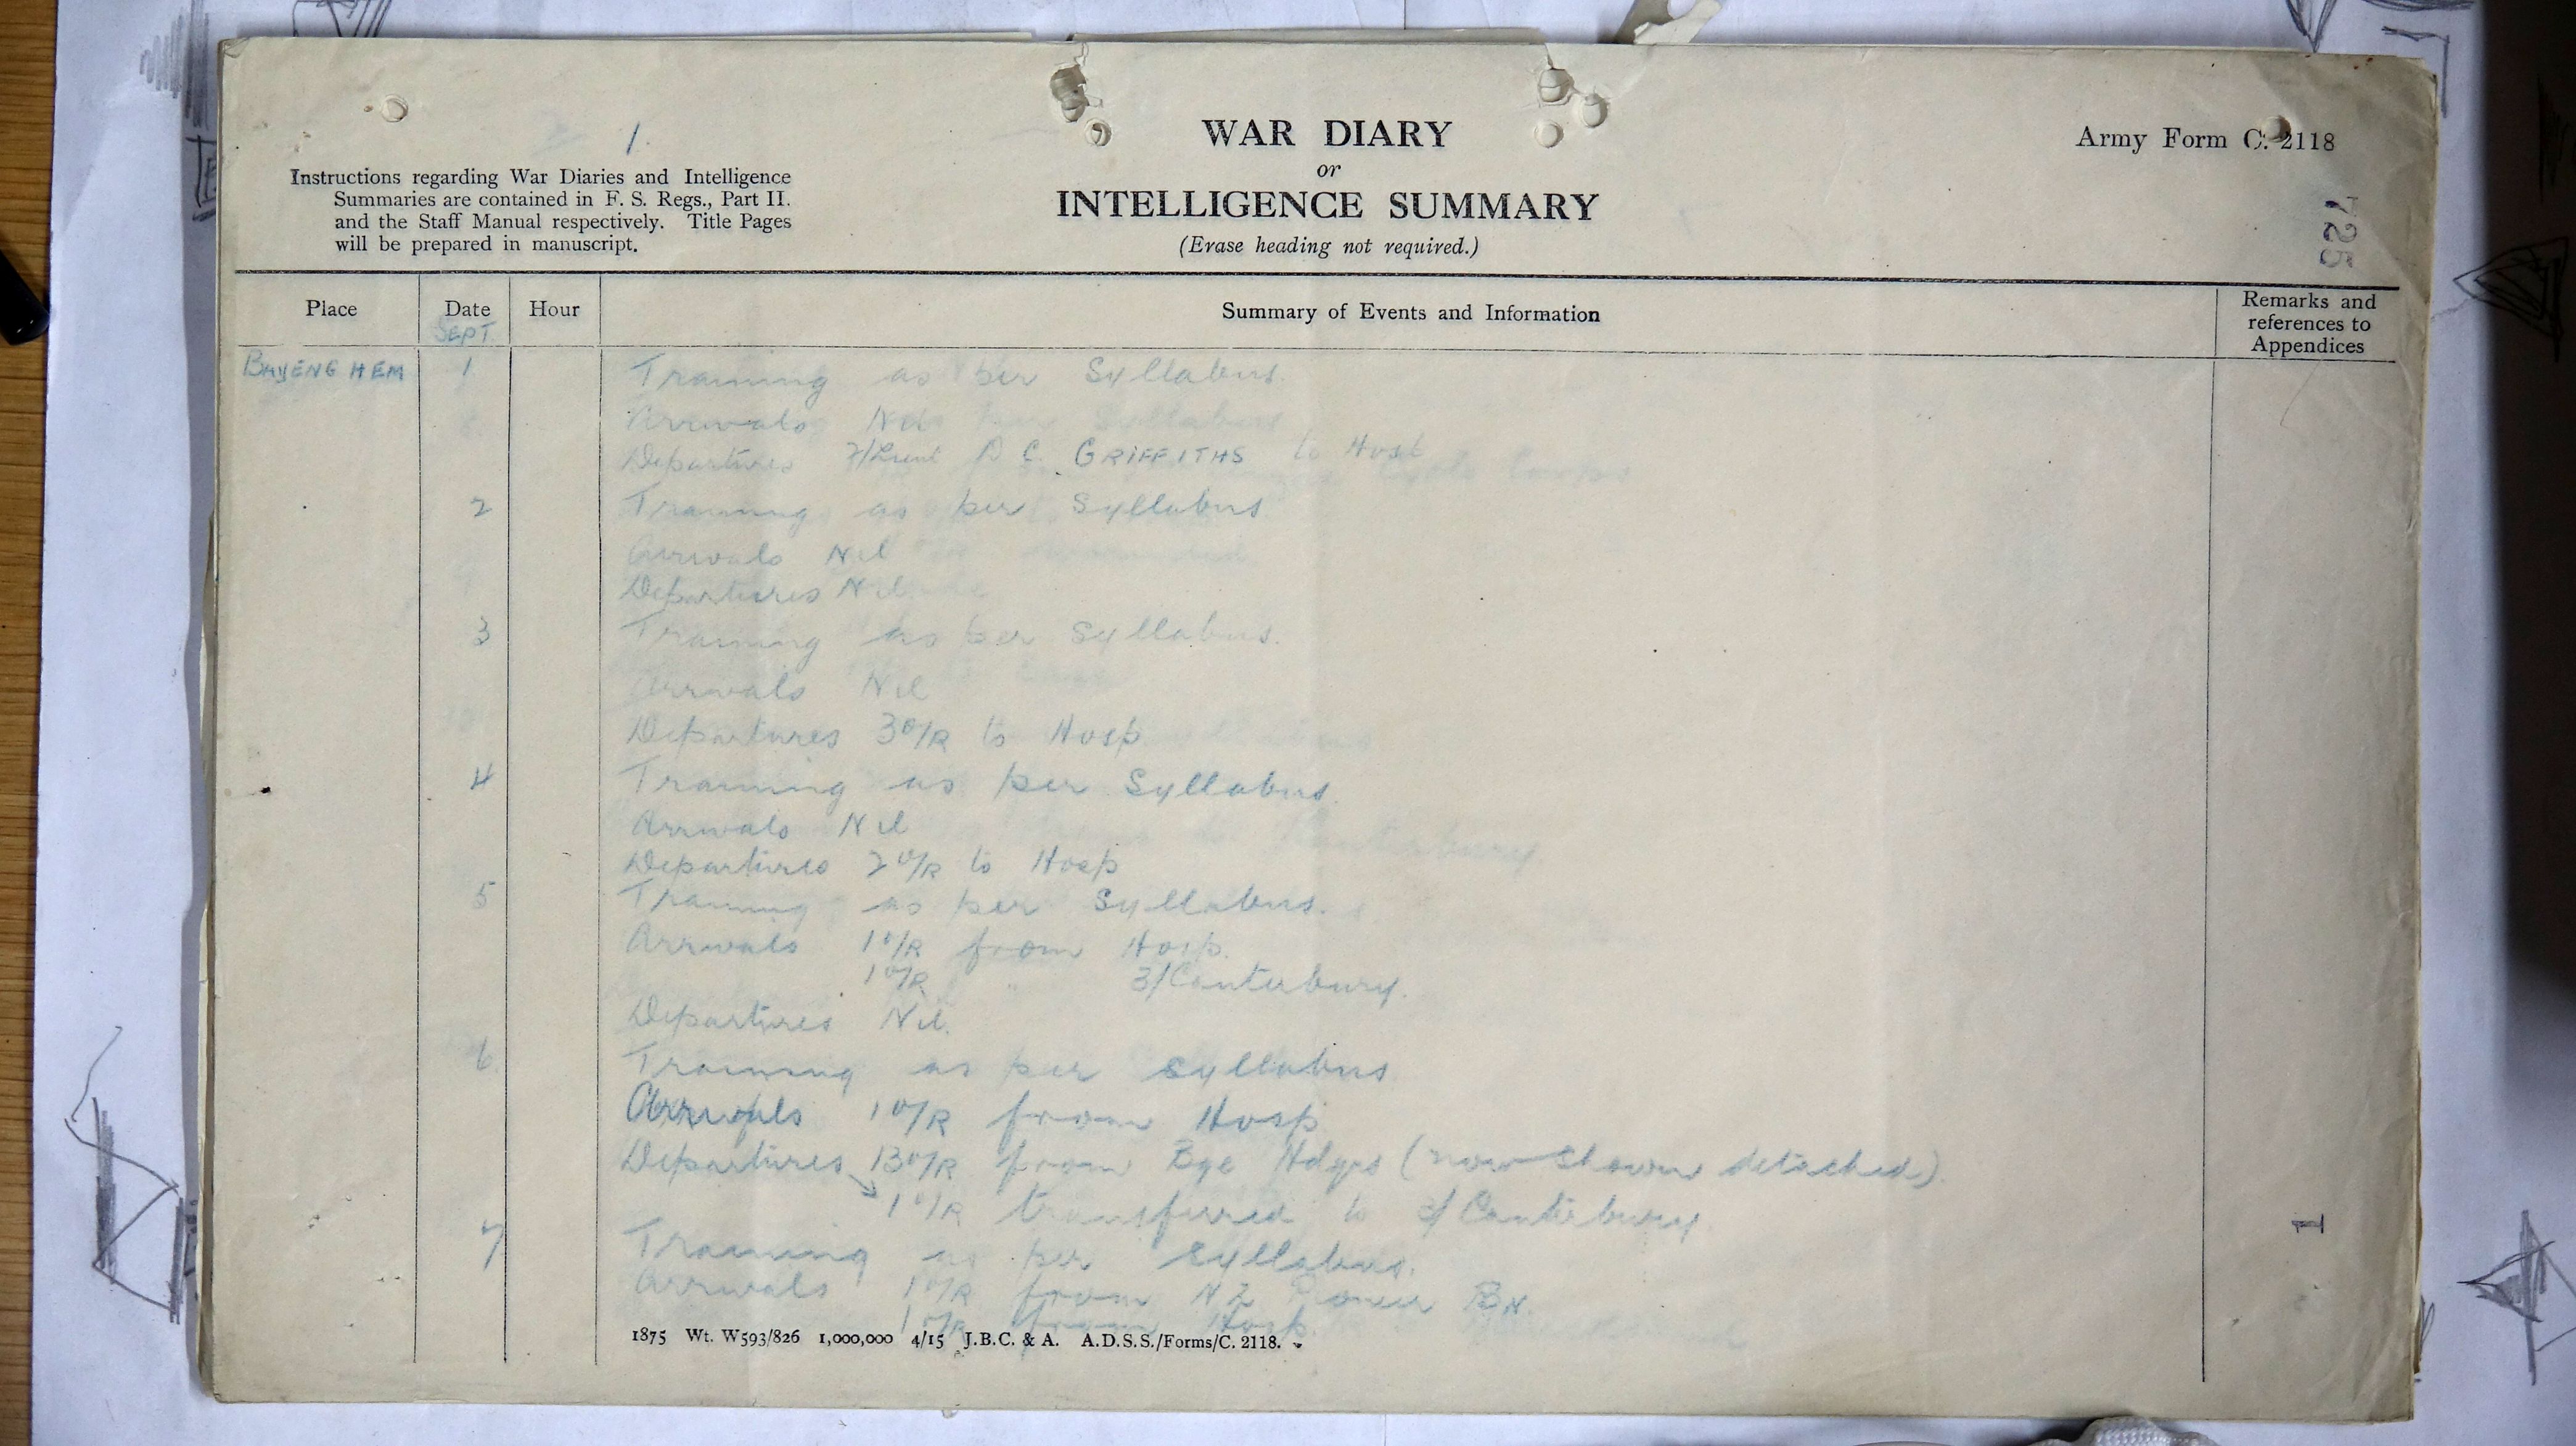 1.
WAR DIARY
or
INTELLIGENCE SUMMARY
(Erase heading not required.)
Army Form C. 2118
Instructions regarding War Diaries and Intelligence
Summaries are contained in F. S. Regs., Part II.
and the Staff Manual respectively. Title Pages
will be prepared in manuscript.
725
Place Date Hour Summary of Events and Information Remarks and references to Appendices
SEPT.
BAYENGHEM 1 Training as per Syllabus.
Arrivals Nil
Departures 2/Lieut D C. GRIFFITHS to Hosp
2 Training as per Syllabus
Arrivals Nil
Departures Nil
3 Training as per Syllabus.
Arrivals Nil
Departures 3 O/R to Hosp
4 Training as per Syllabus.
Arrivals Nil
Departures 2 O/R to Hosp
5 Training as per Syllabus.
Arrivals 1 O/R from Hosp.
1 O/R " 3/Canterbury.
Departures Nil.
6 Training as per Syllabus
Arrivals 1 O/R from Hosp
Departures 13 O/R from Bge Hdqrs (now shown detached).
1 O/R transferred to Canterbury
7 Training as per Syllabus.
Arrivals 1 O/R from NZ Pioneer BN.
1 O/R from Hosp.
1
1875 Wt. W593/826 1,000,000 4/15 J.B.C. & A. A.D.S.S./Forms/C. 2118.